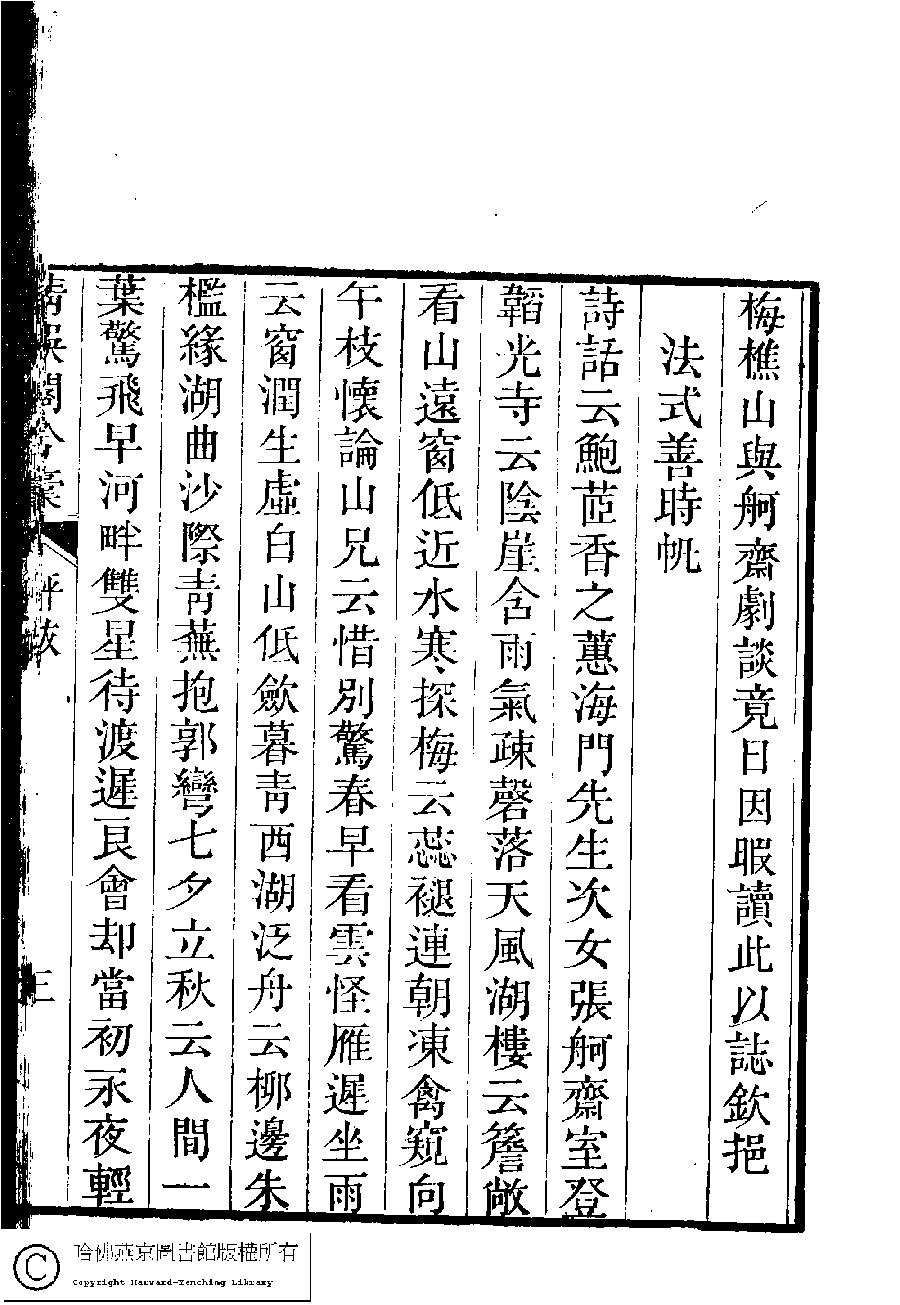 梅樵山與舸齋劇談竟日因暇讀此以誌欽挹
法式善時帆
詩話云鮑茝香之蕙海門先生次女張舸齋室登
韜光寺云陰崖含雨氣疎磬落天風湖樓云簷敞
看山遠窗低近水寒探梅云蕊褪連朝凍禽窺向
午枝懷論山兄云惜別驚春早看雲怪雁遲坐雨
云窗潤生虛白山低斂暮靑西湖泛舟云柳邊朱
檻緣湖曲沙際靑蕪抱郭彎七夕立秋云人間一
葉驚飛早河畔雙星待渡遲良會却當初永夜輕
清娛閣吟稾
評跋
三
哈佛燕京圖書館版權所有
Copyright Harvard-Yenching Library